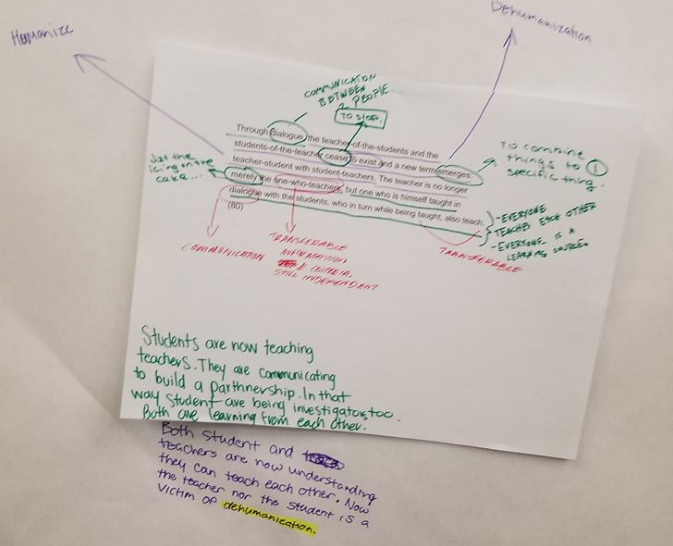 Humanize
Dehumanization
COMMUNICATION
BETWEEN
2 PEOPLE
TO STOP.
Through dialogue, the teacher-of-the-students and the
students-of-the-teacher cease to exist and a new term emerges:
teacher-student with student-teachers. The teacher is no longer
merely the one-who-teaches, but one who is himself taught in
dialogue with the students, who in turn while being taught, also teach.
(80)
Just the
icing on the
cake...
To combine
things to 1
specific thing.
-EVERYONE
TEACHES EACH OTHER
-EVERYONE IS A
LEARNING SOURCE.
COMMUNICATION
TRANSFERABLE
INFORMATION
CRITERIA.
STILL INDEPENDENT
TRANSFERABLE
Students are now teaching
teachers. They are communicating
to build a parthnership. In that
way student are being investigators too.
Both are learning from each other.
Both student and
teachers are now understanding
they can teach each other. Now
the teacher nor the student is a
victim of dehumanication.